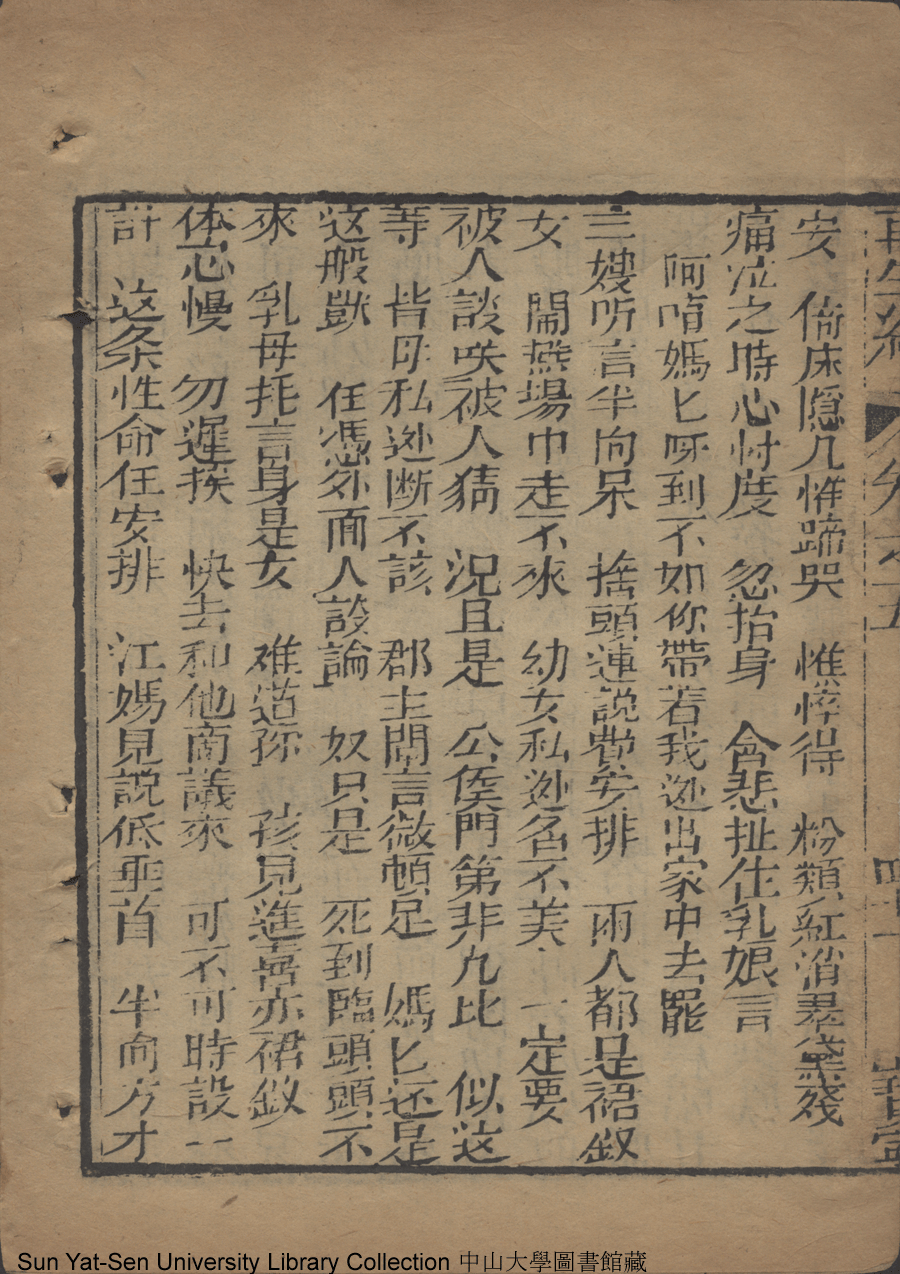 再生緣 卷之五 四十一
安 倚床隐几惟蹄哭 憔悴得 粉類紅消翠黛殘
痛泣之時心忖度 忽抬身 含悲扯住乳娘言
阿唷媽匕呀到不如你帶着我迯出家中去罷
三嫂听言半向呆 捨頭連説費安排 兩人都是裙釵
女 鬧熱場中走不來 幼女私迯名不美 一定要
被人談咲被人猜 況且是 公侯門第非凢比 似这
等 皆毋私迯断不該 郡主聞言微頓足 媽匕还是
这般獃 任憑外面人談論 奴只是 死到臨頭頭不
來 乳母托言身是女 难道孫 孩見進喜亦裙釵
体忌慢 勿遲挨 快去和他商議來 可不可時設一
計 这条性命任安排 江媽見説低垂首 半向方才
Sun Yat-Sen University Library Collection 中山大學圖書館藏